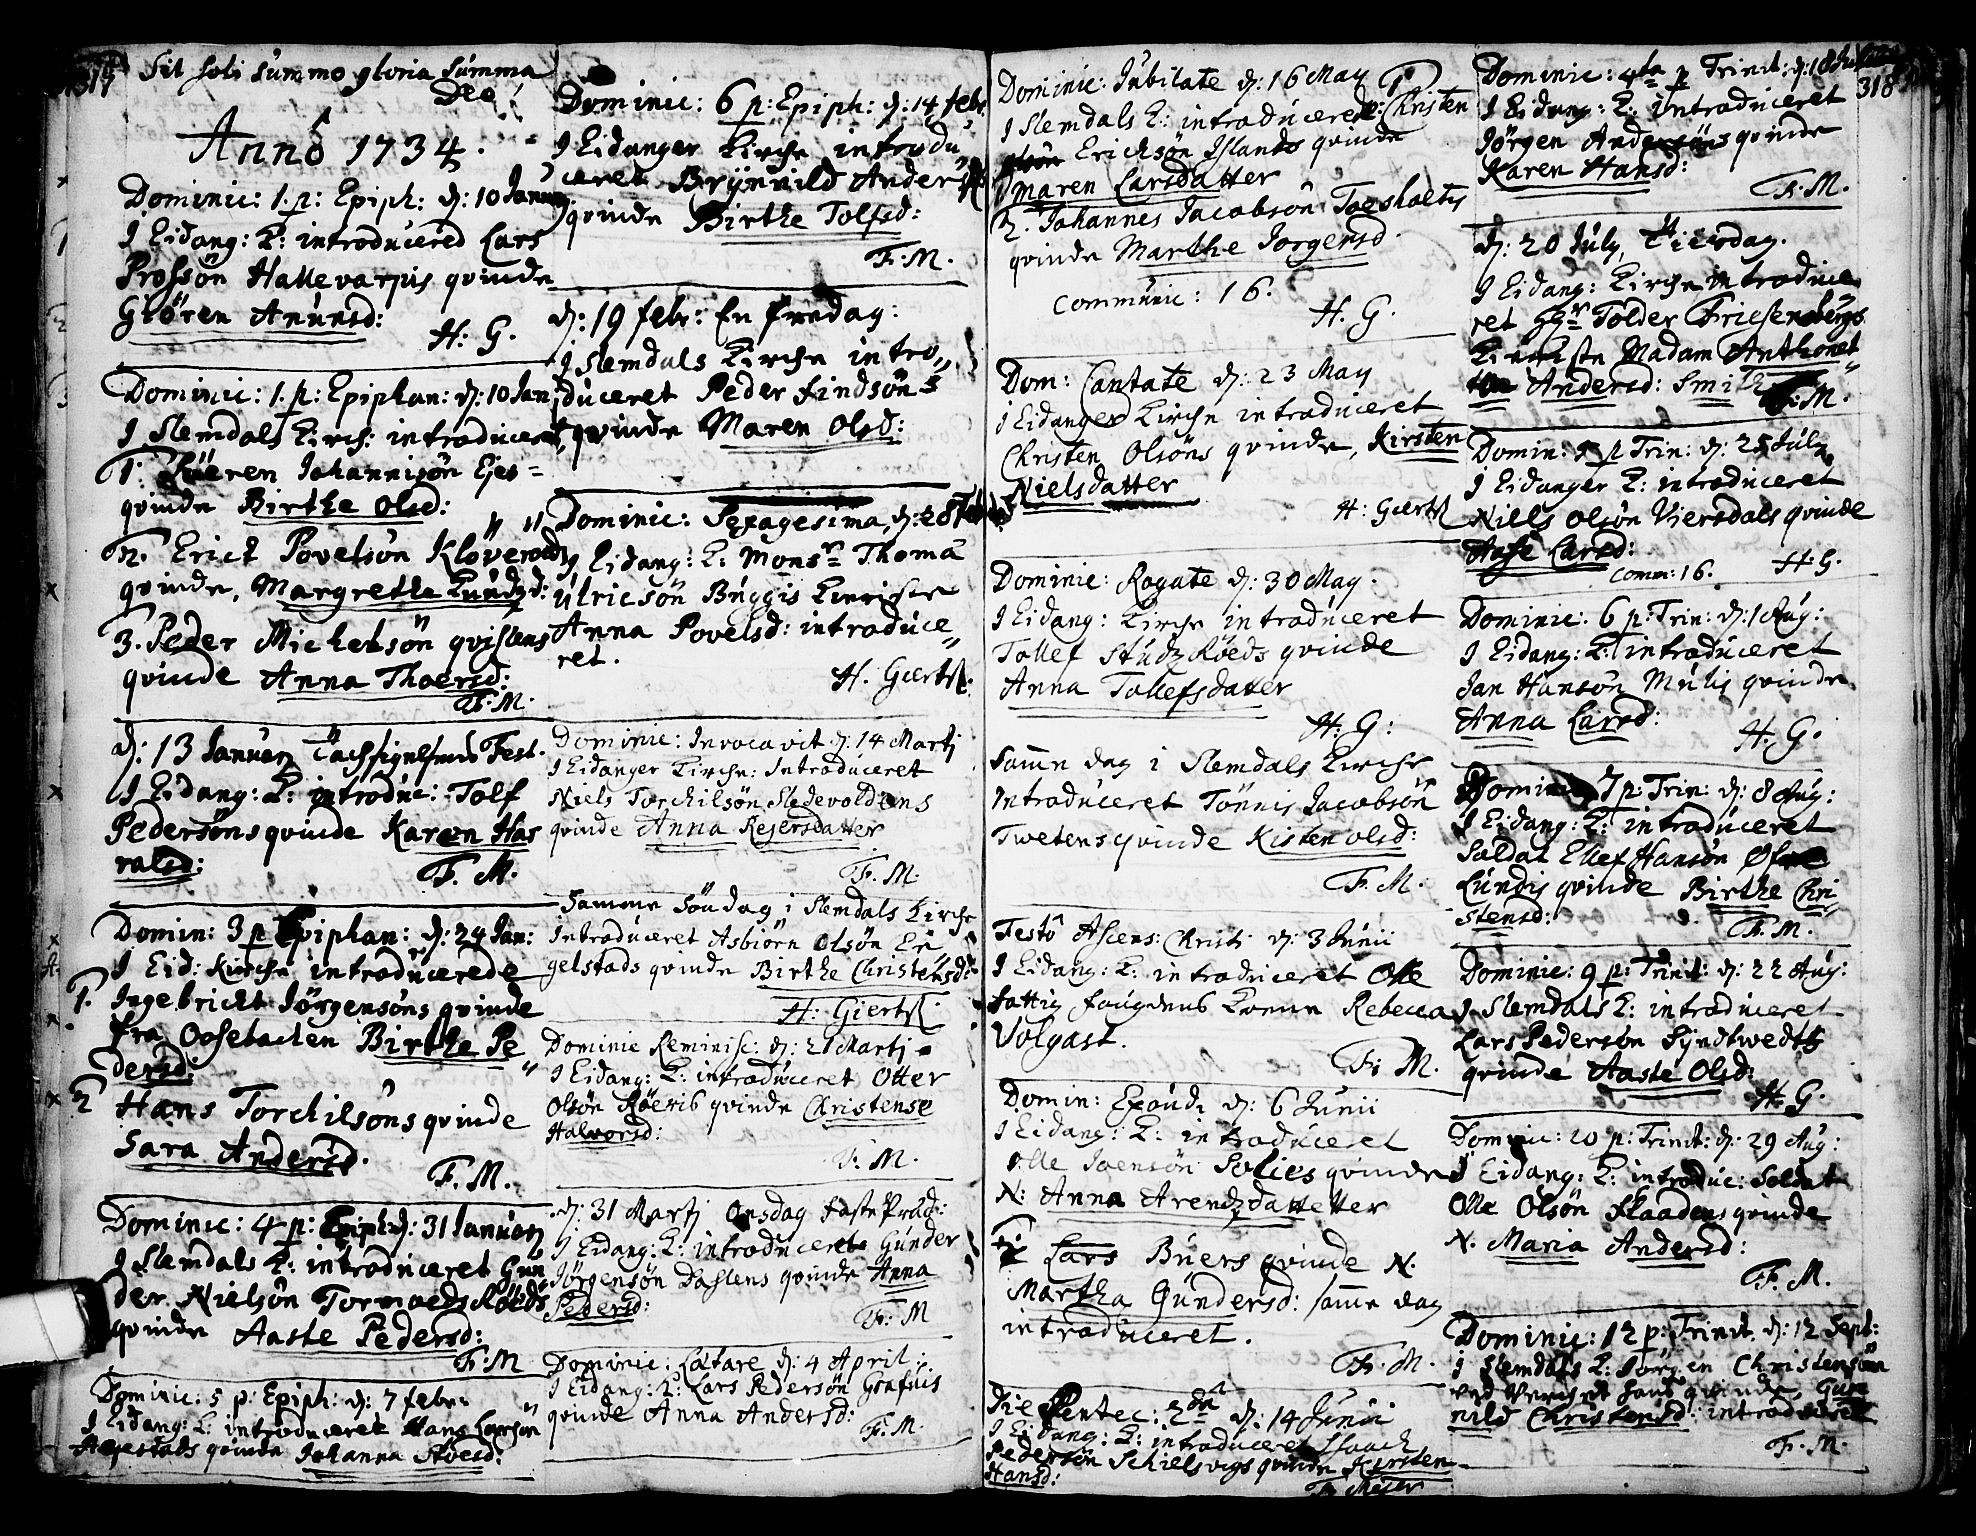 317
Sit soli summo gloria summa
Deo!
Anno 1734.
Dominic: 1. p: Epiph: d: 10 Januarij
I Eidang: K: introducered Lars
Prossøn Hallevarpis qvinde
Giøren Anunsd:
H: G.
Dominic: 1. p: Epiphan: d: 10 Jan:
I Slemdals Kirch: introduceret
1: Søeren Johannisøn Ejes=
qvinde Birthe Olsd:
2. Erick Povelsøn Kløverod
qvinde, Margrethe Knudsd:
3. Peder Michelsøn qvislens
qvinde Anna Thoersd:
F. M.
d: 13 Januarij Tachsigelsens Fest.
I Eidang: K: introduc: Tolf
Pedersøns qvinde Karen Har
ralsd:
F. M.
Domin: 3 p Epiphan: d: 24 Jan:
I Eid: Kirche introducerede
1. Ingebricht Jørgensøns qvinde
fra Oosebachen Birthe Pe
dersd:
2 Hans Torchilsøns qvinde
Sara Andersd.
F. M.
Dominic: 4 p: Epiph: d: 31 Januarij
I Slemdals K: introduceret Gun
der Nielsøn Tormoeds Røeds
qvinde Aaste Pedersd:
F: M
Dominic: 5 p: Epiph: d: 7 febr:
I Eidang: K: introduceret Hans Larsøn
qvinde Johanna Støesd:
Dominic: 6 p: Epiph: d: 14 febr
I Eidanger Kirche introdu
ceret Brynnild Anders
qvinde Birthe Tolfsd:
F. M.
d: 19 febr: En fredag:
I Slemdals Kirche intro
duceret Peder findsøns
qvinde Maren Olsd:
Dominic: Sexagesima, d: 28 Feb
I Eidang: K: Monsr Thoma
Ulricsøn Buggis Kieriste
Anna Povelsd: introduce
ret.
H. Giertsz
Dominic: Invocavit d: 14 Martj
I Eidanger Kirche: Introduceret
Niels Torchilsøn Sledevoldens
qvinde Anna Rejersdatter
F. M.
Samme Søndag i Slemdals Kirche
Introduceret Asbiørn Olsøn En
gelstads qvinde Birthe Christensd:
H: Giertsz
Dominic Reminisc: d: 21 Martj
I Eidang: K: introduceret Otter
Olsøn Røeris qvinde Christense
Halvorsd:
F. M.
d: 31 Martj Onsdag faste Præd:
I Eidang: K: introduceret Gunder
Jørgensøn Dahlens qvinde Anna
Pedersd:
F. M
Dominic: Lætare d: 4 April:
I Eidang: K: Lars Pedersøn Grafuis
qvinde Anna Andersd:
F. M.
Dominic: Jubilate d: 16 May
I Slemdals K: introduceret 1: Christen
Erichsøn Islands qvinde
Maren Larsdatter
2. Johannes Jacobsøn Toesholtis
qvinde Marthe Jørgensd
Communic: 16.
H. G.
Dom: Cantate d: 23 May
I Eidanger Kirche introduceret
Christen Olsøns qvinde, Kirsten
Nielsdatter
H: Giertsz
Dominic: Rogate d: 30 May.
I Eidang: Kirche introduceret
Tollef Studz Røeds qvinde
Anna Tollefsdatter
H: G:
Samme dag i Slemdals Kirche
Introduceret Tønnis Jacobsøn
Twetens qvinde Kisten olsd:
F. M.
Festo Ascens: Christi d: 3 Junii
I Eidang: K: introduceret Olle
fattig fougdens Konne Rebecca
Volgast.
F: M.
Domin: Exaudi d: 6 Junii
I Eidang: K: introduceret
Olle Joensøn Solies qvinde
N: Anna Arendzdatter
Lars Buers qvinde N.
Martha Gundersd: samme dag
introduceret.
F. M.
Die Pentec: 2da d: 14 Junii
I Eidang: K: introduceret Isaach
Pedersøn Schielsvigs qvinde Kirsten
Hansd:
F. Mejer
318
Dominic: 4ta p Trinit: d: 18 Julii
I Eidang: K: introduceret
Jørgen Andersøns qvinde
Karen Hansd:
F. M.
d: 20 July, Tiersdag.
I Eidang: Kirche introduce
ret Hr Tolder Friesenbergs
Kierriste Madam Anthonet
the Andersd: Smith
F. M.
Domin: 5 p Trin: d: 25 July
I Eidanger K: introduceret
Niels Olsøn Viersdals qvinde
Aase Larsd:
Comm: 16.
H: G.
Dominic: 6 p: Trin: d: 1 Aug:
I Eidang: K: introduceret
Jan Hansøn Mulis qvinde
Anna Larsd:
H. G.
Dominic 7 p: Trin: d: 8 Aug:
I Eidang: K: introduceret
Soldat Ellef Hansøn Øfre
Lundis qvinde Birthe Chri
stensd:
F. M.
Dominic: 9 p: Trinit: d: 22 Aug:
I Slemdals K: introduceret
Lars Pedersøn Syndtwedts
qvinde Aaste Olsd:
H. G.
Dominic: 10 p: Trinit: d: 29 Aug:
I Eidang: K: introduc: Soldat
Olle Olsøn Skaadens qvinde
N. Maria Andersd:
F. M.
Dominic: 12 p: Trinit. d: 12 Sept:
I Slemdals K: Jørgen Christensøn
ved Verchet hans qvinde, Gun
nild Christensd: introduceret
F. M.